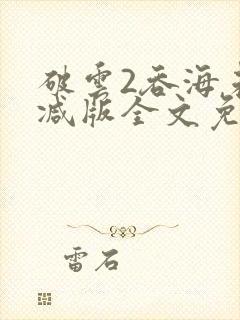 破雲2吞海未
减版全文免
雷石